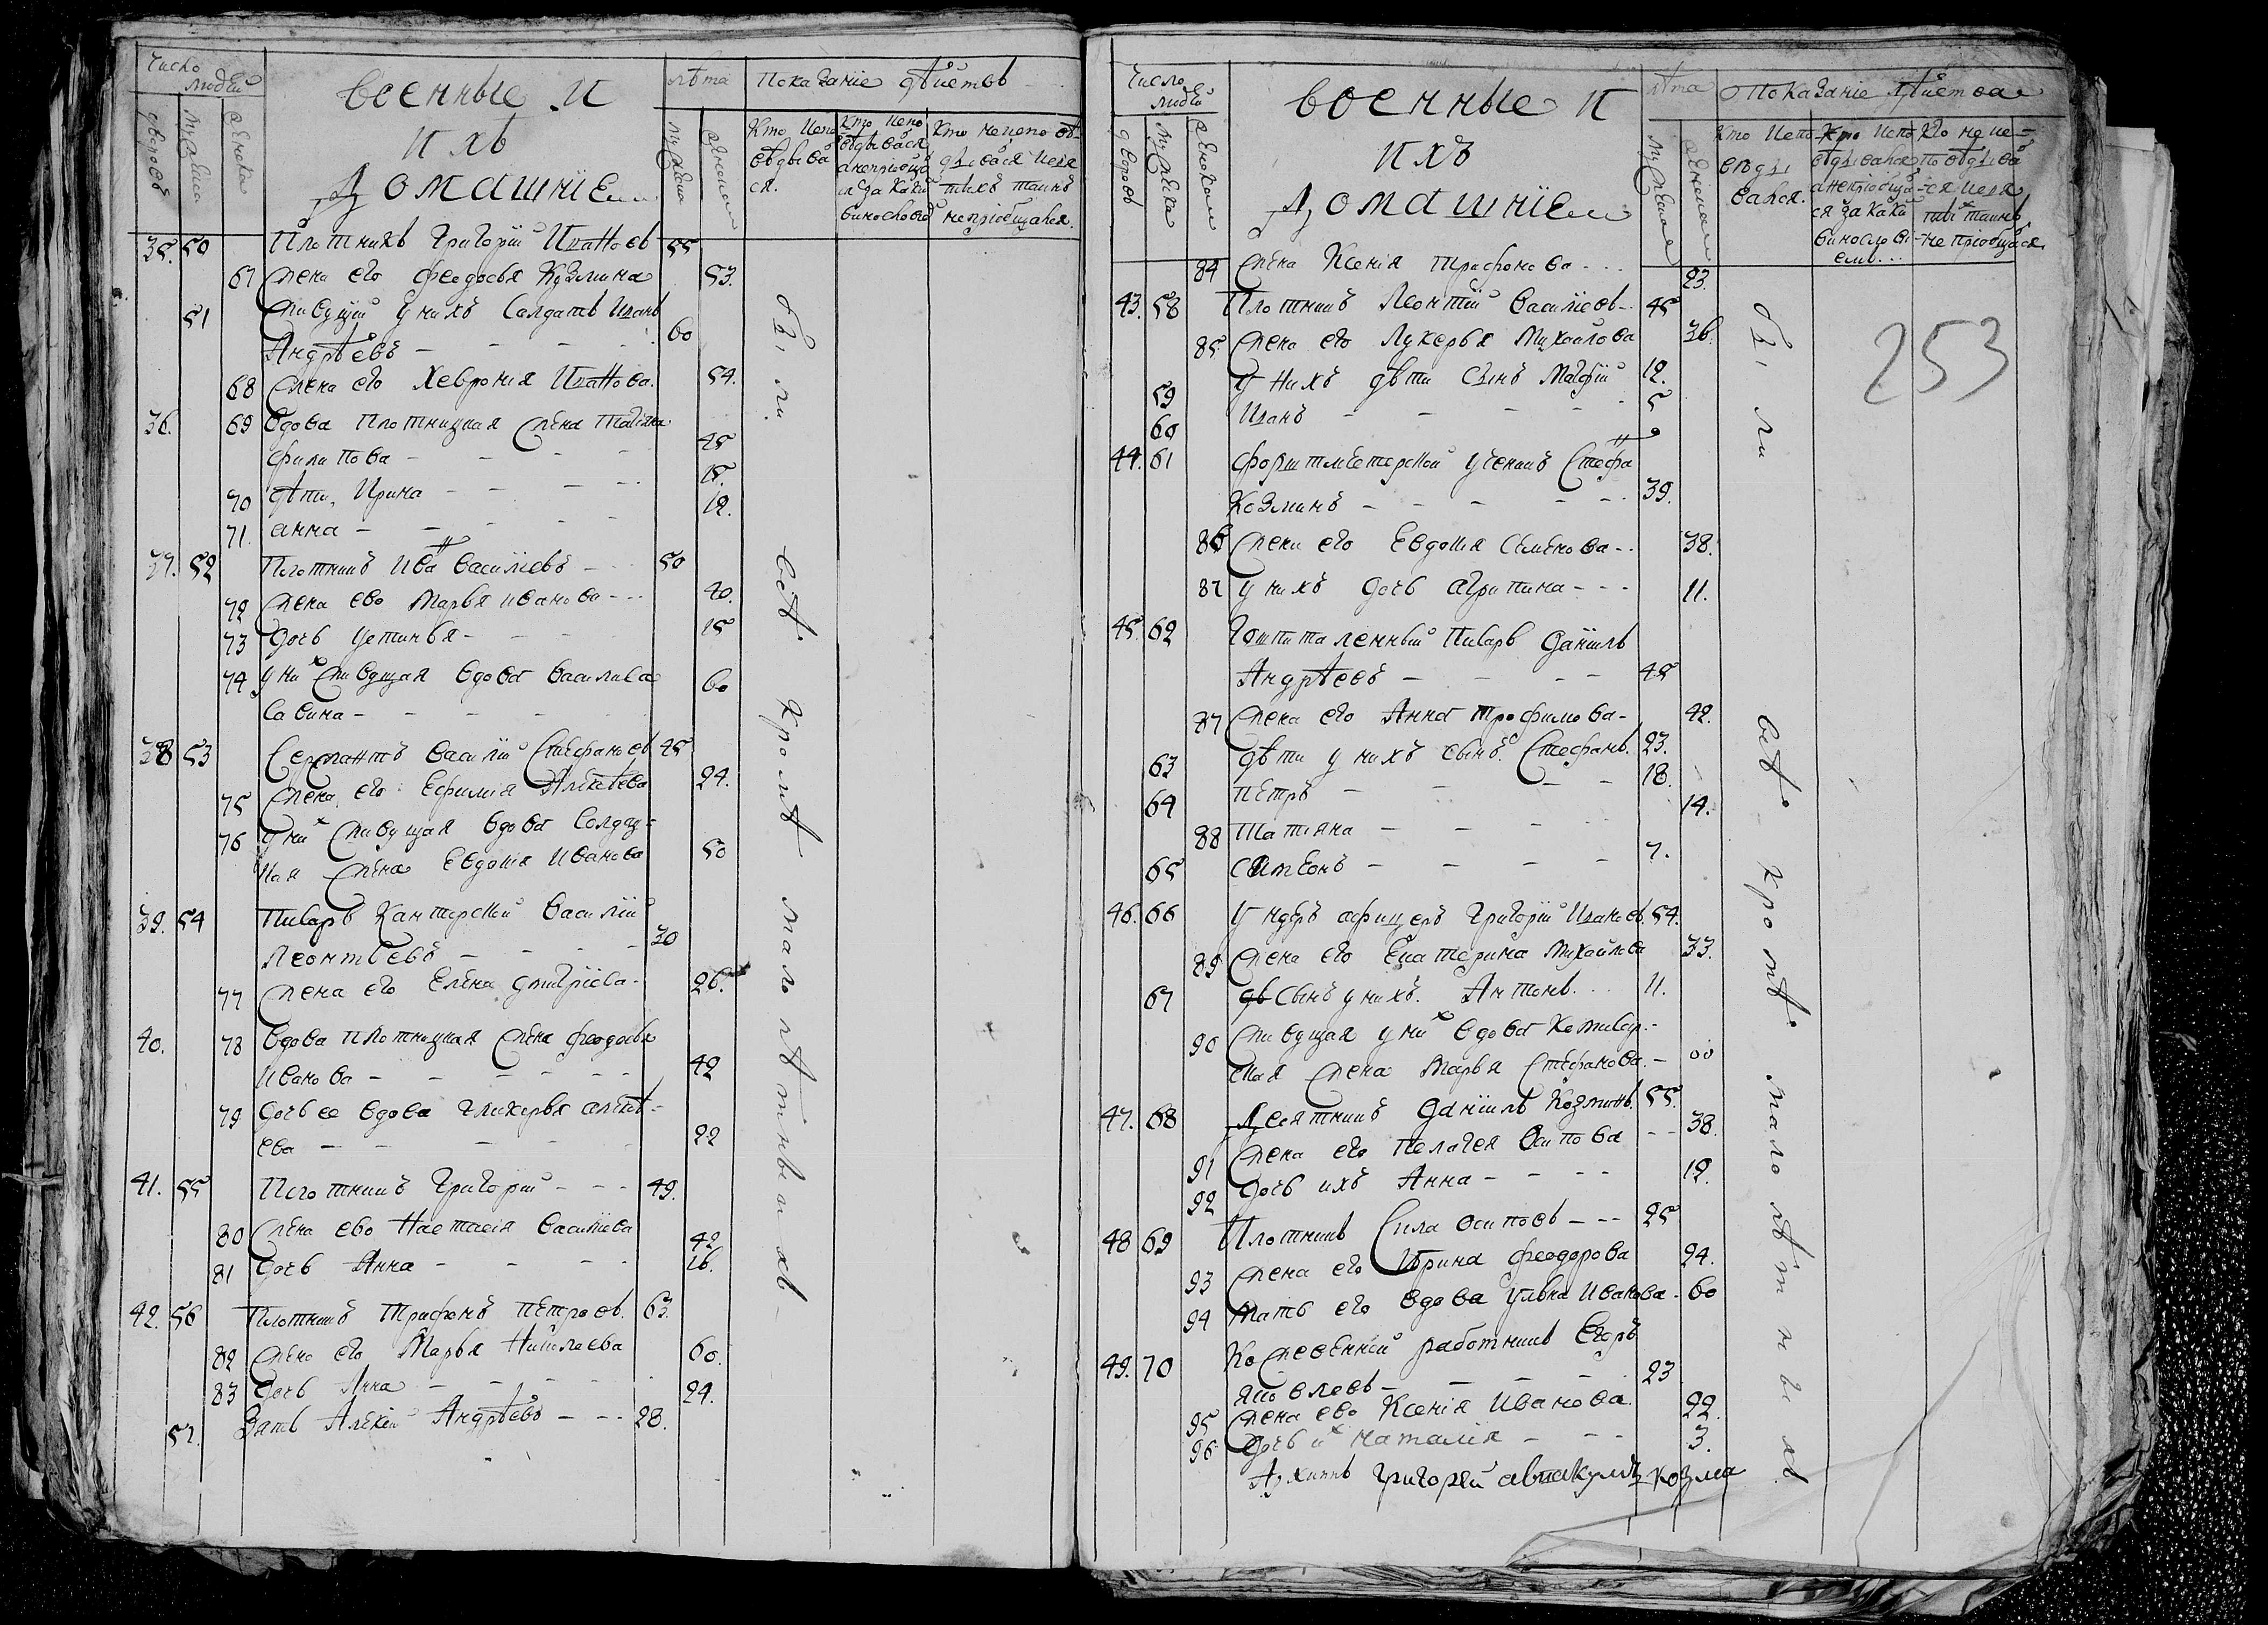 Число людей
дворовъ
мужеска
женска
военные и
ихъ
домашніе
лѣта
мужеска
женска
Показаніе дѣйствъ
Кто испо
вѣдыва
ся.
Кто испо
вѣдывася
а непріобщи
ся за каки
винословіе
Кто не испо вѣ
дывася и свя
тыхъ таинъ
непріобщался.
35. 50 Плотникъ Григорій Ивановъ 55
67 жена его Феодосья Кузмина 53.
51 живущій у нихъ Салдатъ Иванъ
Андрѣевъ - - - - 60
68 жена его Хевронія Иванова. 54.
36. 69 вдова Плотницкая жена Татіяна
Филипова - - - - 45
70 дѣти, Ирина - - - - 15.
71. анна - - - - - 12.
37. 52 Плотникъ Ива Василіевъ - 50
72 жена ево Марья иванова - - - 40.
73 дочь устинья - - - - 15
74 у ни живущая вдова Василиса
Савина - - - - - 60
38 53 Сержантъ Василій Стефановъ 45
75 жена его Ефимія Алексѣева 24.
76 у ни живущая вдова Солдац-
кая жена Евдокія Иванова 50
39. 54 Писарь Кантерской Василій
Леонтьевъ - - - - 30
77 жена его Елена дмитріева - 26.
40. 78 вдова плотницкая жена Феодосья
Иванова - - - - - - 42
79 дочь ее вдова Гликерья алексѣ-
ева - - - - - 22
41. 55 Плотникъ Григорій - - - 49.
80 жена ево Настасія Василіева 42
81 дочь Анна - - - - 16.
42. 56 Плотникъ Трифонъ Петровъ. 63.
82 жена его Марья Николаева 60.
83 дочь Анна - - - - 24.
57. Зать Алексѣй Андрѣевъ - - - 28.
были всѣ кромѣ малолѣтныхъ -
Число людей
дворовъ
мужеска
женска
военные и
ихъ
домашніе
лѣта
мужеска
женска
Показаніе дѣйства
Кто испо
вѣды
вался.
Кто испо
вѣдывался
а непріобщи
ся за каки
винослові
емъ...
Кто не ис-
повѣдыва
ся и свя
тыи таинъ
не пріобщася
253
84 жена Ксенія Трифонова - . . . 23.
43. 58 Плотникъ Леонтій Василіевъ - . 45
85. жена его Лукерья Михайлова 36.
59 у нихъ дѣти Сынъ Матфій 12.
60 Иванъ - - - - 5
44. 61 Форштмейстерской ученикъ Стефа
Козминъ - - - - - 39.
86 жена его Евдокія Семенова - . 38.
87 у нихъ дочь агрипина - - - 11.
45. 62 Гошпиталенный Писарь Даніилъ
Андрѣевъ - - - - 45
87 жена его Анна Трофимова - 42.
63 дѣти у нихъ сынъ. Стефанъ. 23.
64 Петръ - - - - 18.
88 Татіяна - - - 14.
65 Симеонъ - - - - 7.
46. 66 Ундеръ афицеръ Григорій Ивановъ. 54.
89 жена его Екатерина Михайлова 33.
67 Сынъ у нихъ. Антонъ. . . 11.
90 живущая у ни вдова Комисар-
ская жена Марья Стефанова. -
47. 68 Десятникъ Даніилъ Козминъ. 55.
91 жена его Пелагея Осипова - - 38.
92 дочь ихъ Анна - - - - 12.
48 69 Плотникъ Сила осиповъ - - - 25
93 жена его Ирина Феодорова 24.
94 мать его вдова Ульяна Иванова - 60
49. 70 Кожевенной работникъ Егоръ
яковлевъ - - - - 23
95 жена ево Ксенія Иванова. 22.
96 дочь и наталія - - - 3.
были всѣ кромѣ малолѣтныхъ.
Григорѣй аввакумъ козма